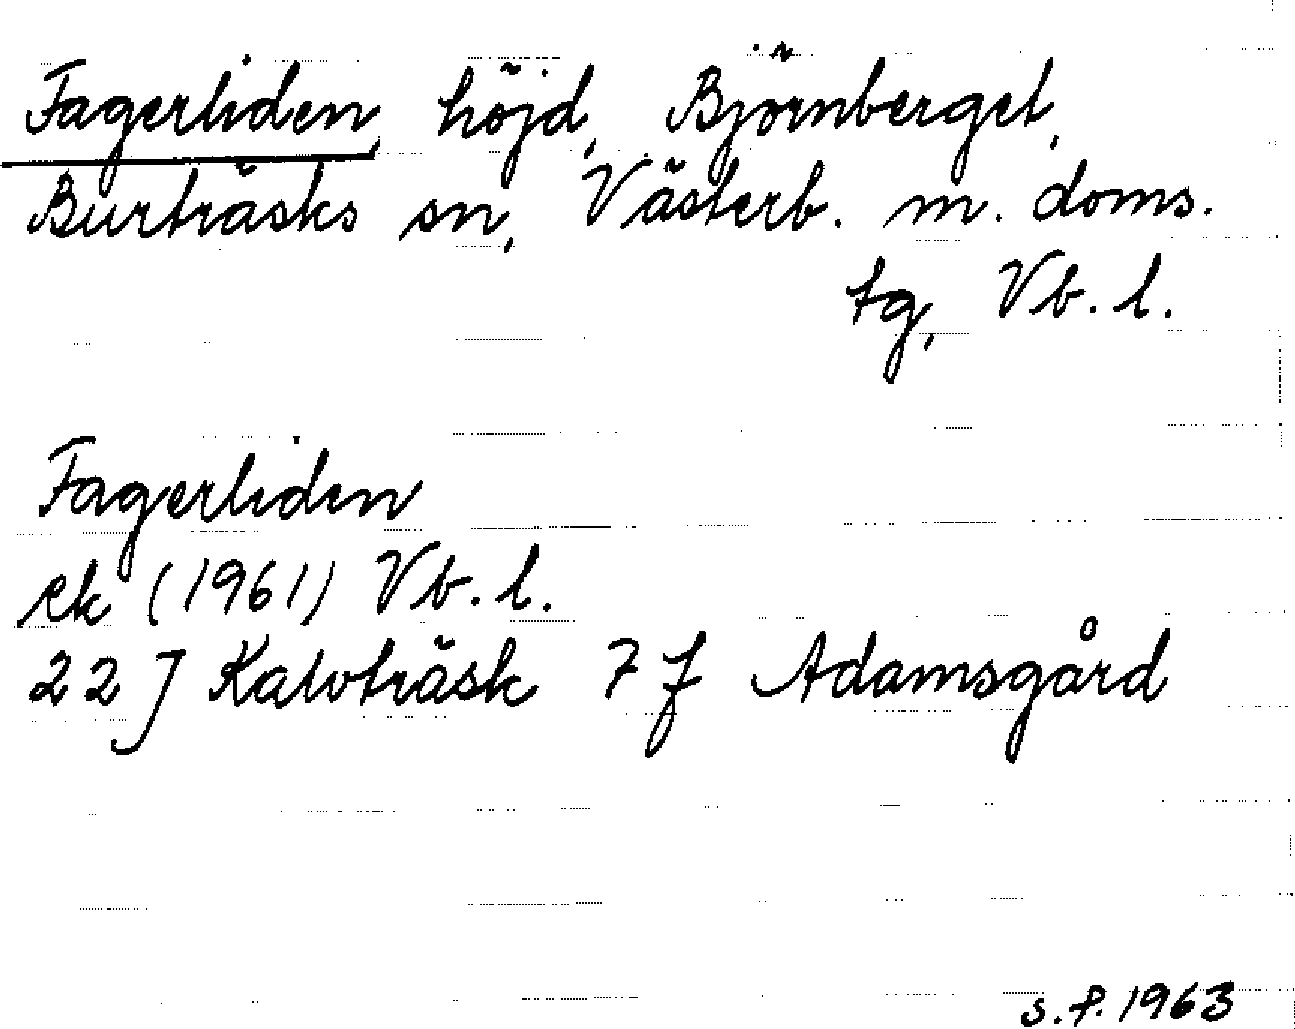 Fagerliden, höjd, Björnberget,
Burträsks sn, Västerb. m. doms.
tg, Vb. l.
Fagerliden
ek (1961) Vb. l.
22 J Kalvträsk 7 f Adamsgård
s. f. 1963